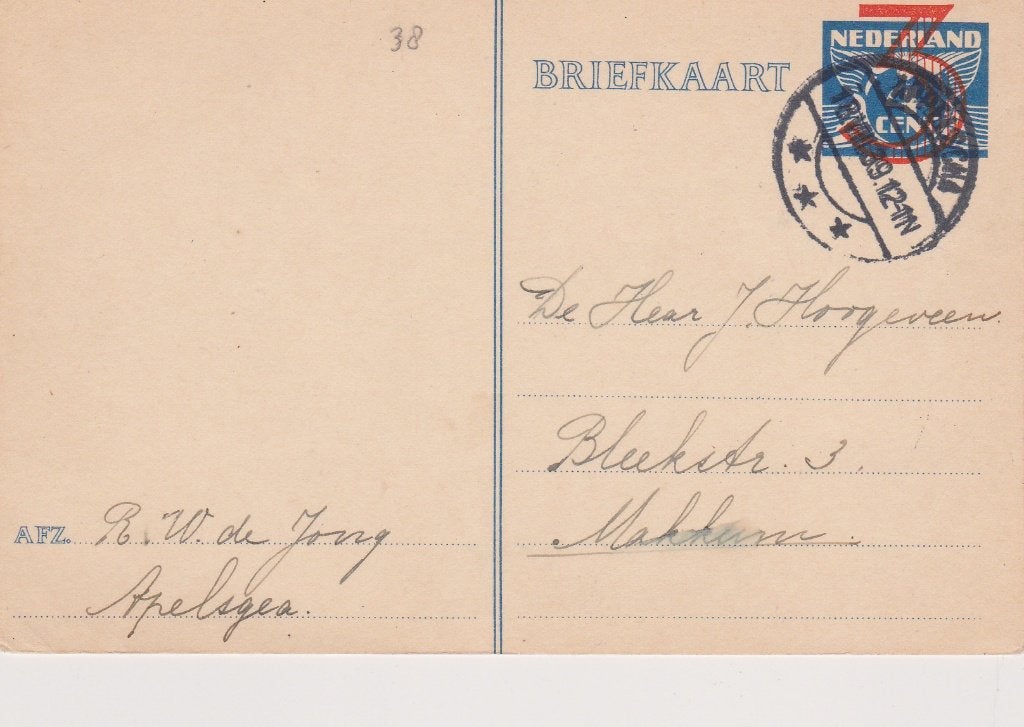 38
BRIEFKAART
NEDERLAND
3
CENT
APPELSCHA
12.VIII.39.12-1N
De Hear J. Hoogeveen.
Bleekstr. 3.
Makkum.
AFZ. R. W. de Jong
Apelsgea.